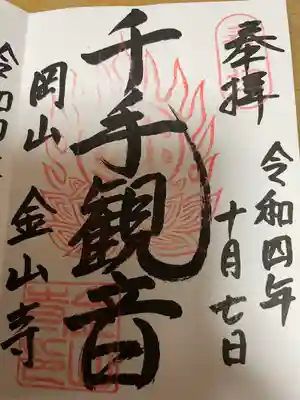 奉拝
令和四年
十月七日
千手観音
岡山 金山寺